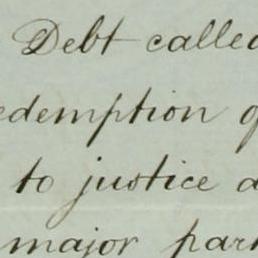 Debt called
edemption of
to justice a
major part